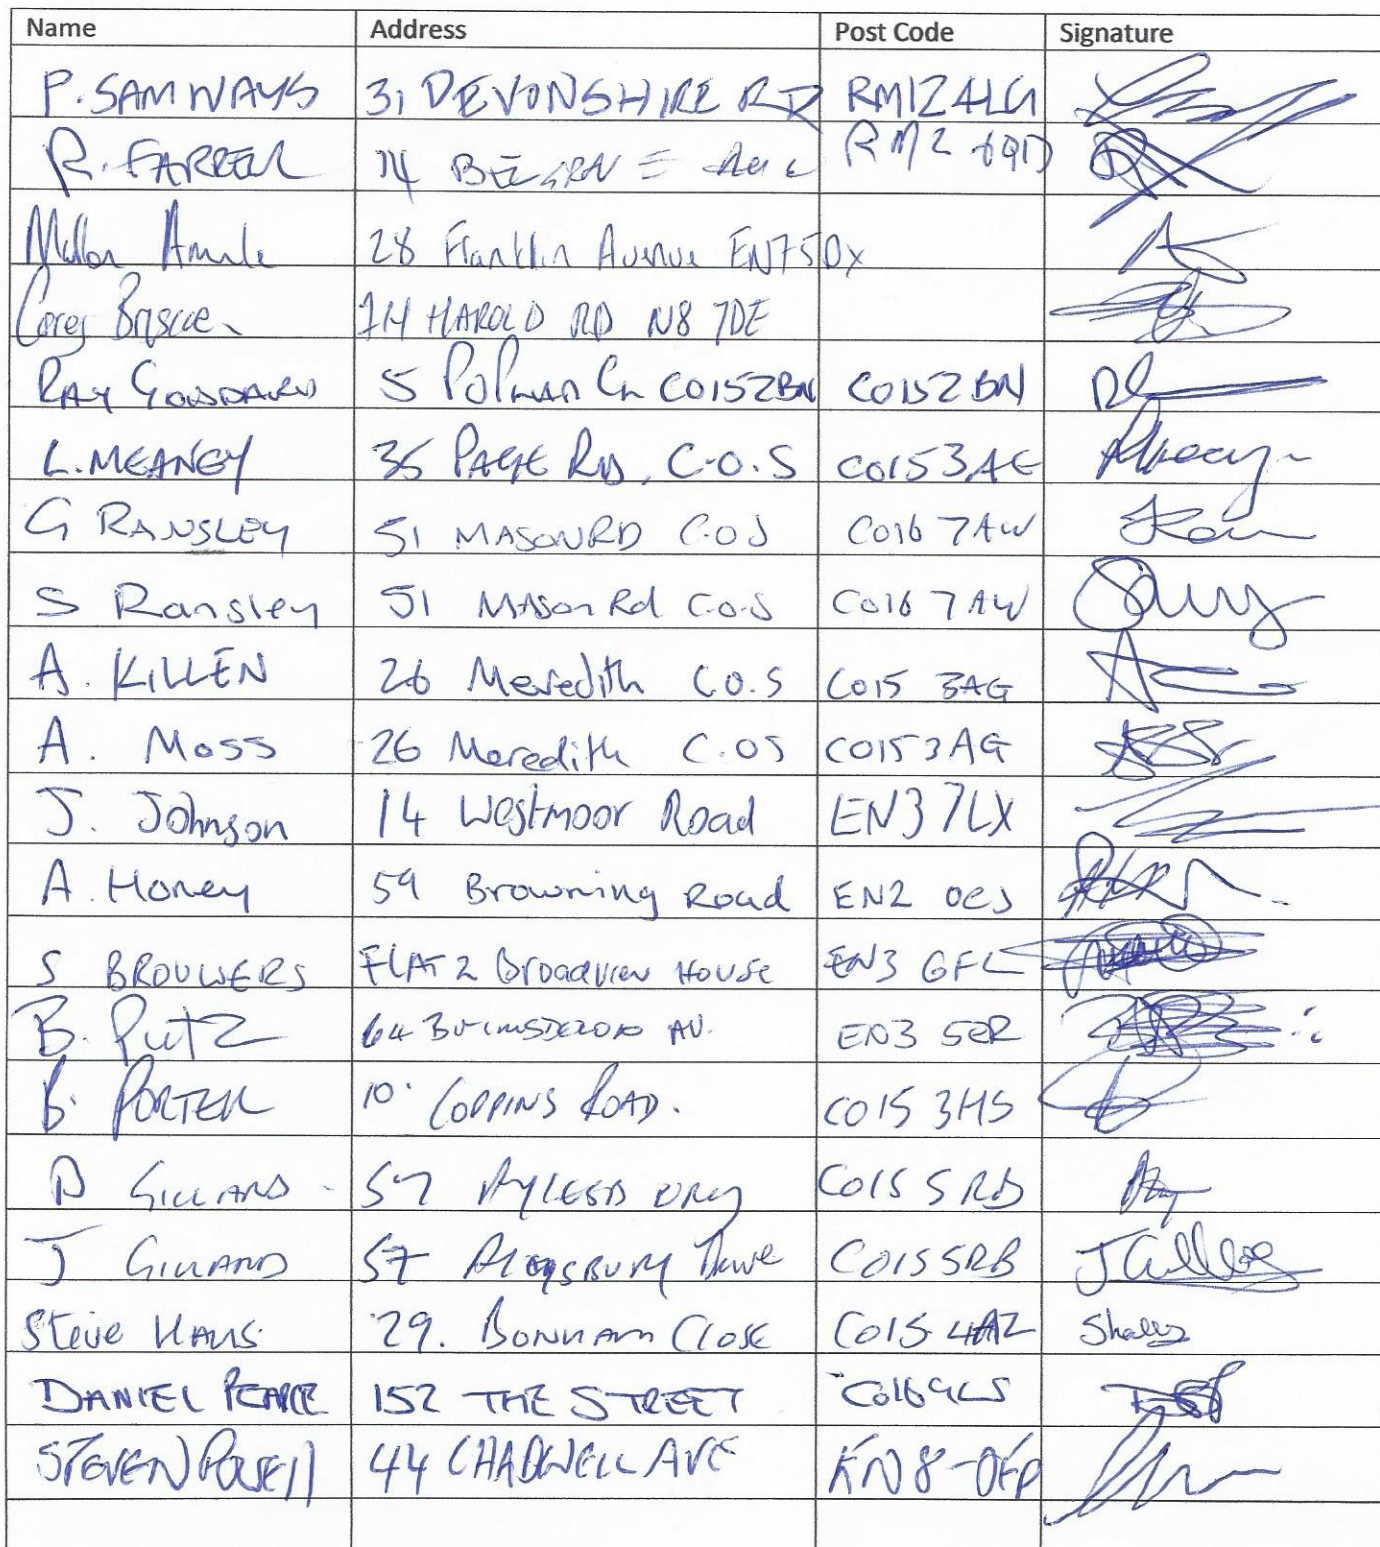 Name Address Post Code Signature
P. SAMWAYS 31 DEVONSHIRE RD RM12 4LG
R. FARRELL 14 RM2 6QD
28 Franklin Avenue EN7 5DX
Corey Briscoe 74 HAROLD RD N8 7DE
RAY GODDARD 5 POLMAN CO152BN CO152BN
L. MEANEY 35 PAGE RD. C.O.S CO153AE
G RANSLEY 51 MASON RD C.O.S CO16 7AW
S Ransley 51 MASon Rd C.O.S CO16 7AW
A. KILLEN 26 Meredith C.O.S CO15 3AG
A. Moss 26 Meredith C.OS CO15 3AG
J. Johnson 14 Westmoor Road EN3 7LX
A. Honey 59 Browning Road EN2 0EJ
S BROUWERS FLAT 2 Broadview HOUSE EN3 6FL
B. Putz 64 AV. EN3 5ER
B. PORTER 10 COPPINS ROAD. CO15 3HS
D GILLARD 57 CO15 5RB
J GILLARD 57 Drive CO155RB J Gillard
Steve HALLS 29. BONHAM CLOSE CO15 4AZ Shalls
DANIEL PEARCE 152 THE STREET CO169LS
STEVEN POWELL 44 CHADWELL AVE EN8-0FP